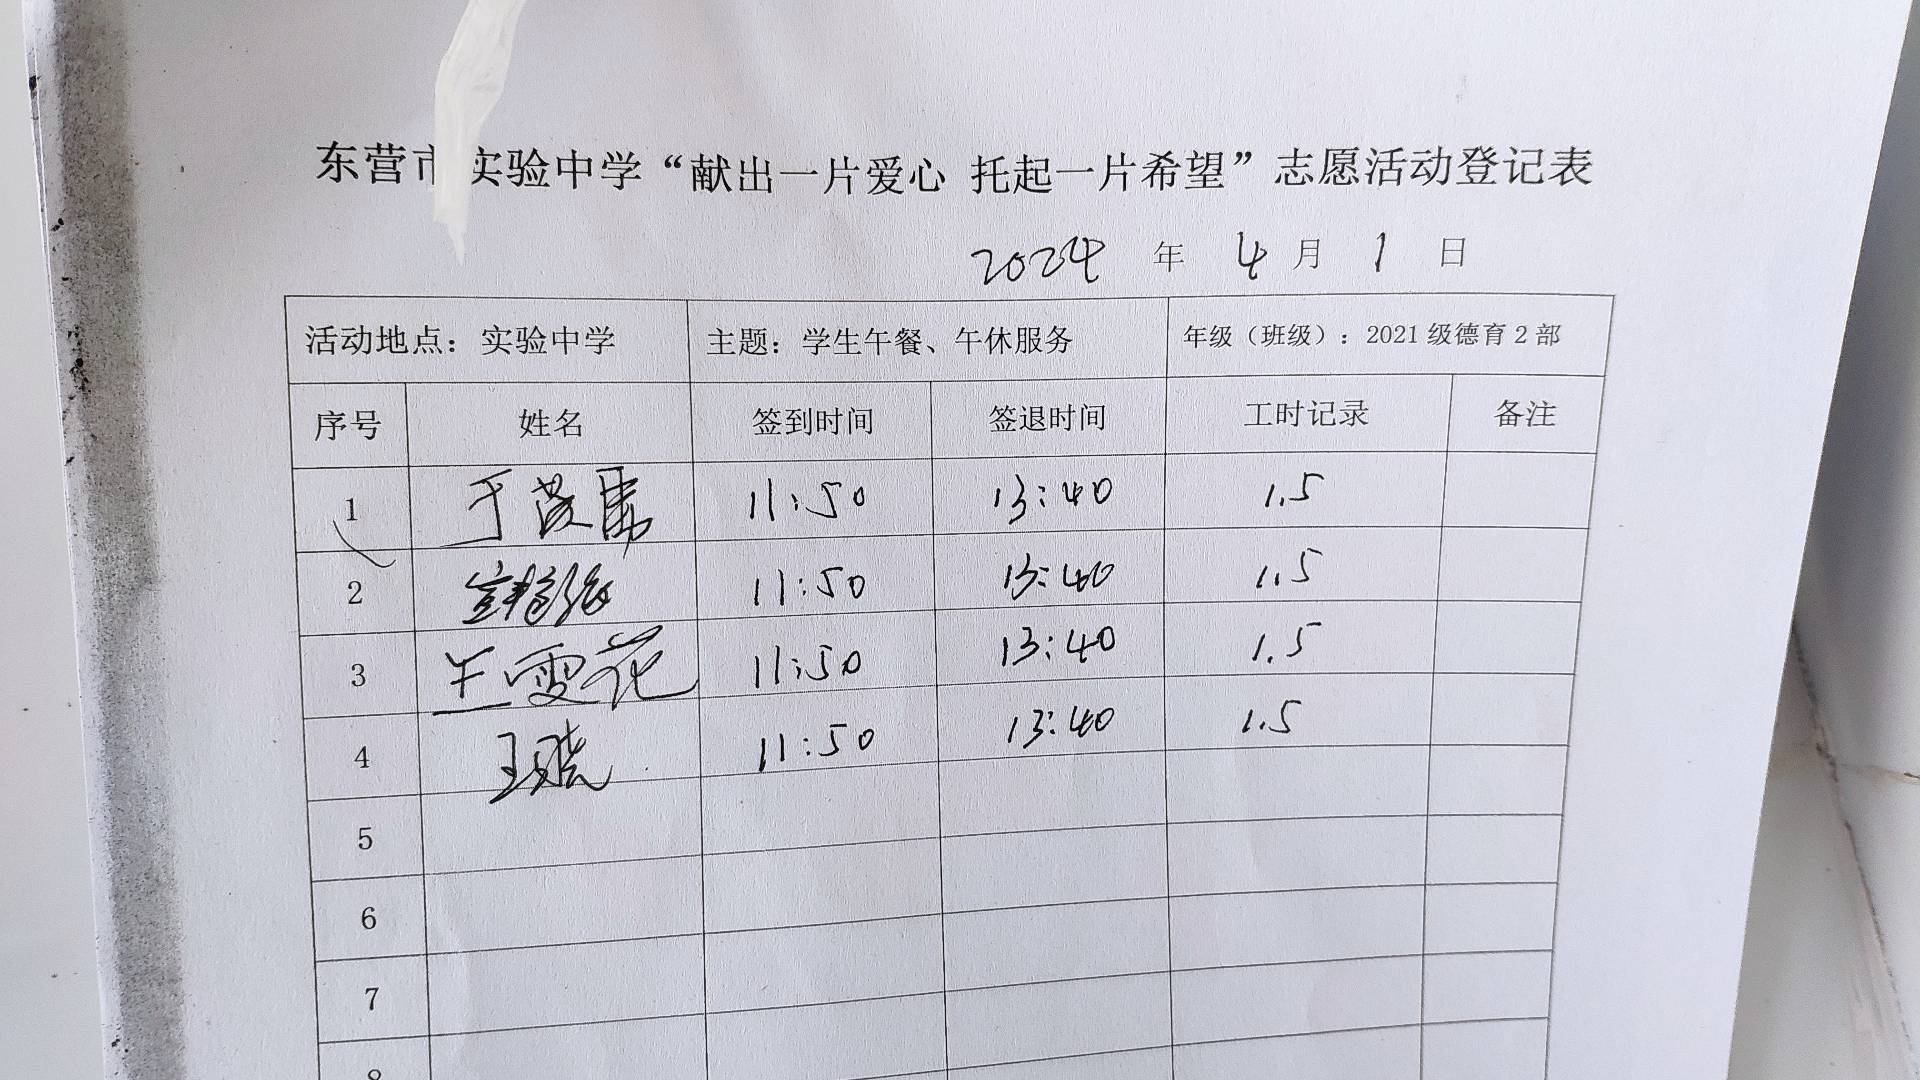 东营市实验中学“献出一片爱心 托起一片希望”志愿活动登记表
2024 年 4 月 1 日
活动地点：实验中学 主题：学生午餐、午休服务 年级（班级）：2021级德育2部
序号 姓名 签到时间 签退时间 工时记录 备注
1 11:50 13:40 1.5
2 11:50 13:40 1.5
3 王雪花 11:50 13:40 1.5
4 王晓 11:50 13:40 1.5
5
6
7
8